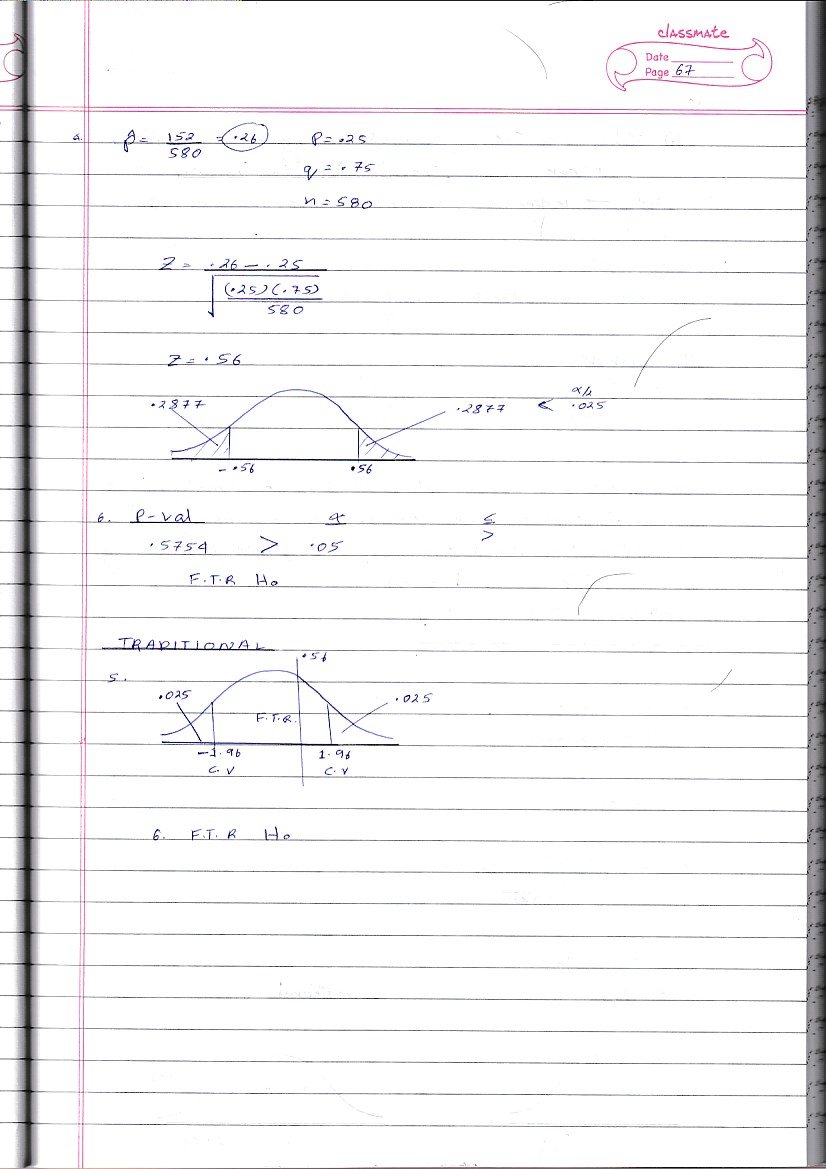 classmate
Date
Page 67
4. p̂ = 152/580 = .26 P = .25
q = .75
n = 580
Z = .26 - .25 / √((.25)(.75)/580)
Z = .56
.2877 .2877 < α/2 .025
-.56 .56
6. P-val α ≤
.5754 > .05 >
F.T.R Ho
TRADITIONAL
.56
5.
.025 F.T.R. .025
-1.96 1.96
C.V C.V
6. F.T.R Ho